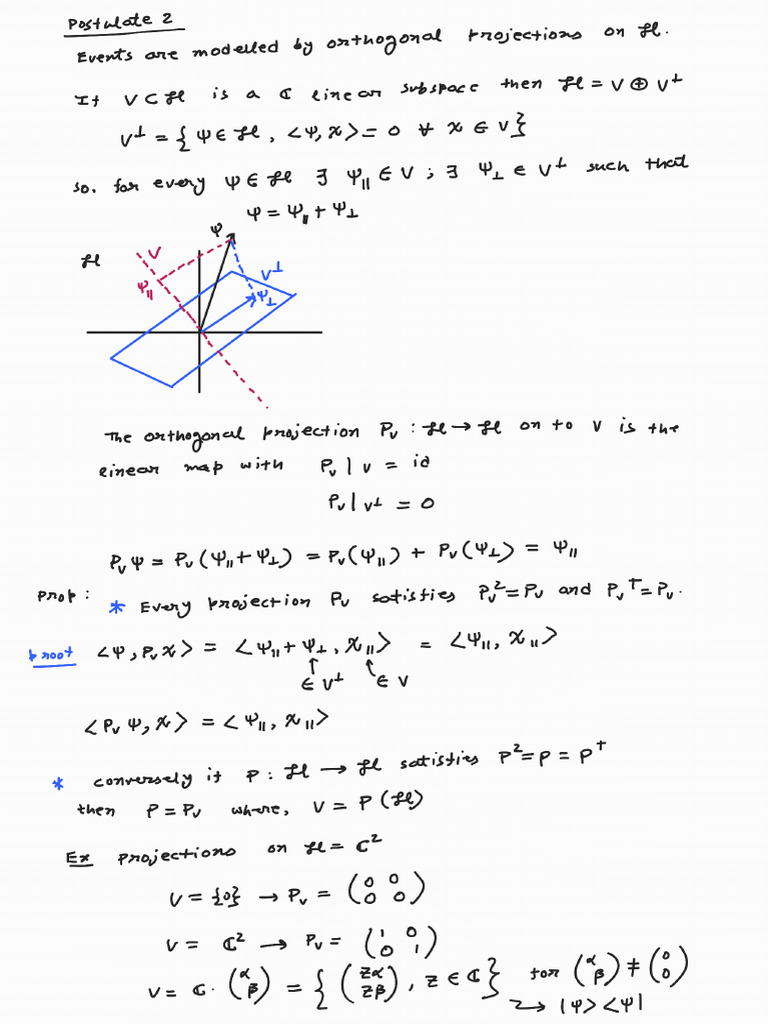 Postulate 2
Events are modelled by orthogonal projections on ℋ.
If V ⊂ ℋ is a ℂ linear subspace then ℋ = V ⊕ V^⊥
V^⊥ = { ψ ∈ ℋ, <ψ, χ> = 0 ∀ χ ∈ V }
so, for every ψ ∈ ℋ ∃ ψ_∥ ∈ V ; ∃ ψ_⊥ ∈ V^⊥ such that
ψ = ψ_∥ + ψ_⊥
ψ
ℋ
V
V^⊥
ψ_∥
ψ_⊥
The orthogonal projection P_V : ℋ → ℋ on to V is the
linear map with P_V | V = id
P_V | V^⊥ = 0
P_V ψ = P_V (ψ_∥ + ψ_⊥) = P_V (ψ_∥) + P_V (ψ_⊥) = ψ_∥
Prop :
* Every projection P_V satisfies P_V^2 = P_V and P_V^† = P_V.
proof <ψ, P_V χ> = <ψ_∥ + ψ_⊥, χ_∥> = <ψ_∥, χ_∥>
∈ V^⊥ ∈ V
<P_V ψ, χ> = <ψ_∥, χ_∥>
* conversely if P : ℋ → ℋ satisfies P^2 = P = P^†
then P = P_V where, V = P (ℋ)
Ex projections on ℋ = ℂ^2
V = {0} → P_V = (0 0 / 0 0)
V = ℂ^2 → P_V = (1 0 / 0 1)
V = ℂ · (α / β) = { (zα / zβ), z ∈ ℂ } for (α / β) ≠ (0 / 0)
↪ |ψ> <ψ|